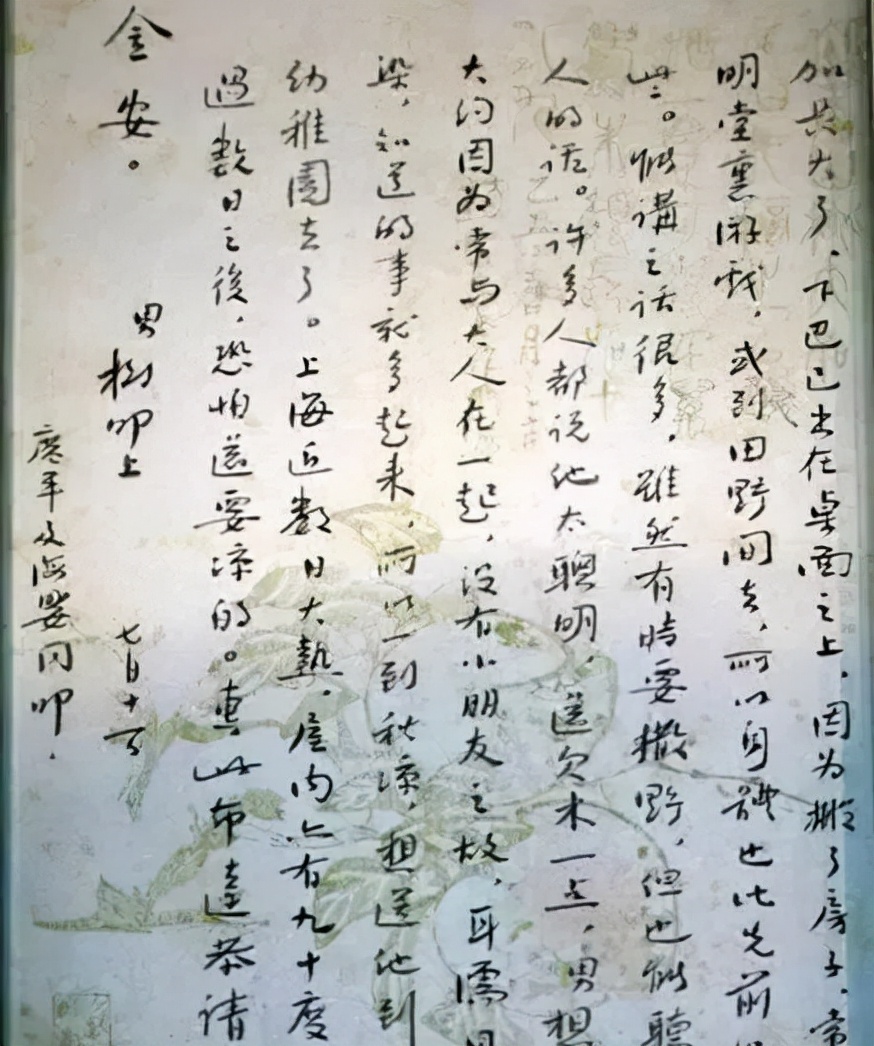 加長大了、下巴已出在桌面之上，因为搬了房子，常
明堂裏游戏，或到田野间去，所以身體也比先前
些。能講之话很多，雖然有時要撒野，但也能聽
人的话。许多人都说他太聰明，還欠木一点，男想
大约因为常与大人在一起，没有小朋友之故，耳濡目
染，知道的事就多起来，所以一到秋涼，想送他到
幼稚園去了。上海近數日大熱，屋内亦有九十度
過數日之後，恐怕還要涼的。專此布達恭請
金安。
男樹叩上 七月十一日
廣平及海嬰同叩．